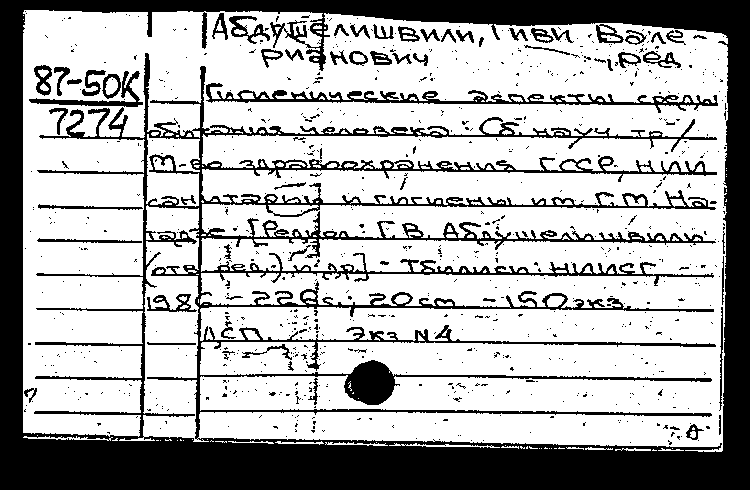 Абдушелишвили, Гиви Вале-
рианович , ред.
87-50К
7274
Гигиенические аспекты среды
обитания человека : Сб. науч. тр /
М-во здравоохранения ГССР, НИИ
санитарии и гигиены им. Г.М. На-
тадзе; [Редкол.: Г.В. Абдушелишвили
(отв. ред.) и др.] - Тбилиси: НИИСГ,
1986 - 226с.; 20 см - 150 экз.
ДСП. Экз N4.
А